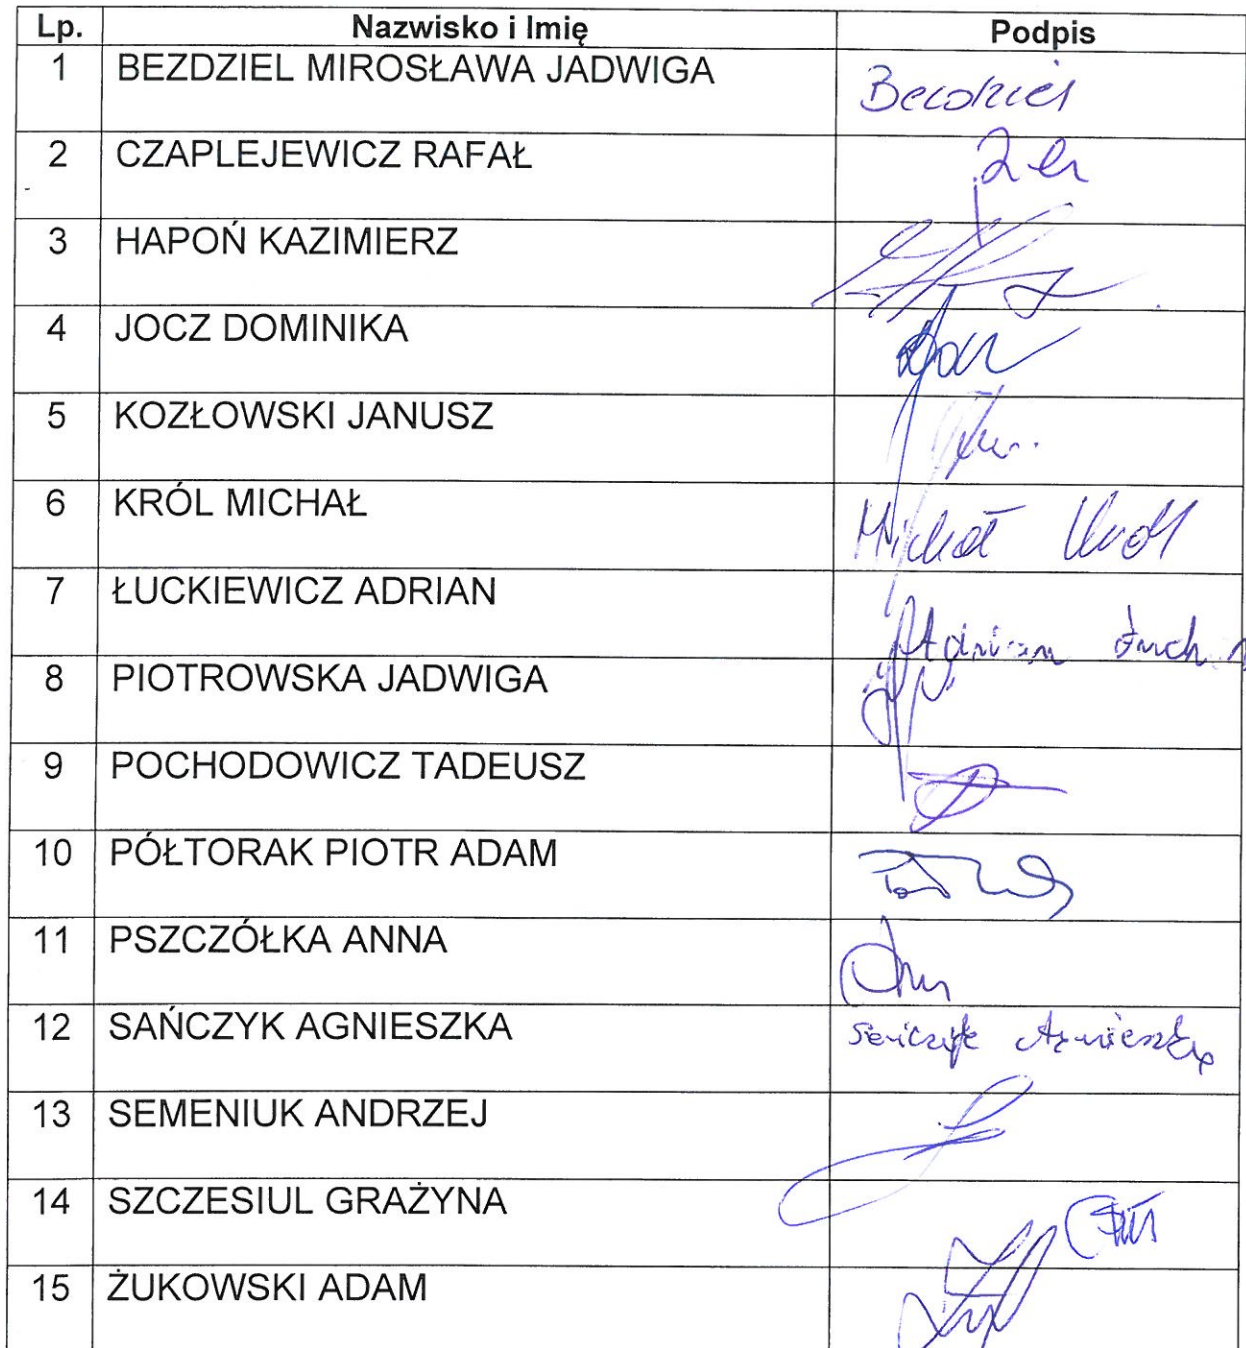 Lp. Nazwisko i Imię Podpis
1 BEZDZIEL MIROSŁAWA JADWIGA
2 CZAPLEJEWICZ RAFAŁ
3 HAPOŃ KAZIMIERZ
4 JOCZ DOMINIKA
5 KOZŁOWSKI JANUSZ
6 KRÓL MICHAŁ Michał Król
7 ŁUCKIEWICZ ADRIAN Adrian
8 PIOTROWSKA JADWIGA
9 POCHODOWICZ TADEUSZ
10 PÓŁTORAK PIOTR ADAM
11 PSZCZÓŁKA ANNA
12 SAŃCZYK AGNIESZKA Sańczyk Agnieszka
13 SEMENIUK ANDRZEJ
14 SZCZESIUL GRAŻYNA
15 ŻUKOWSKI ADAM